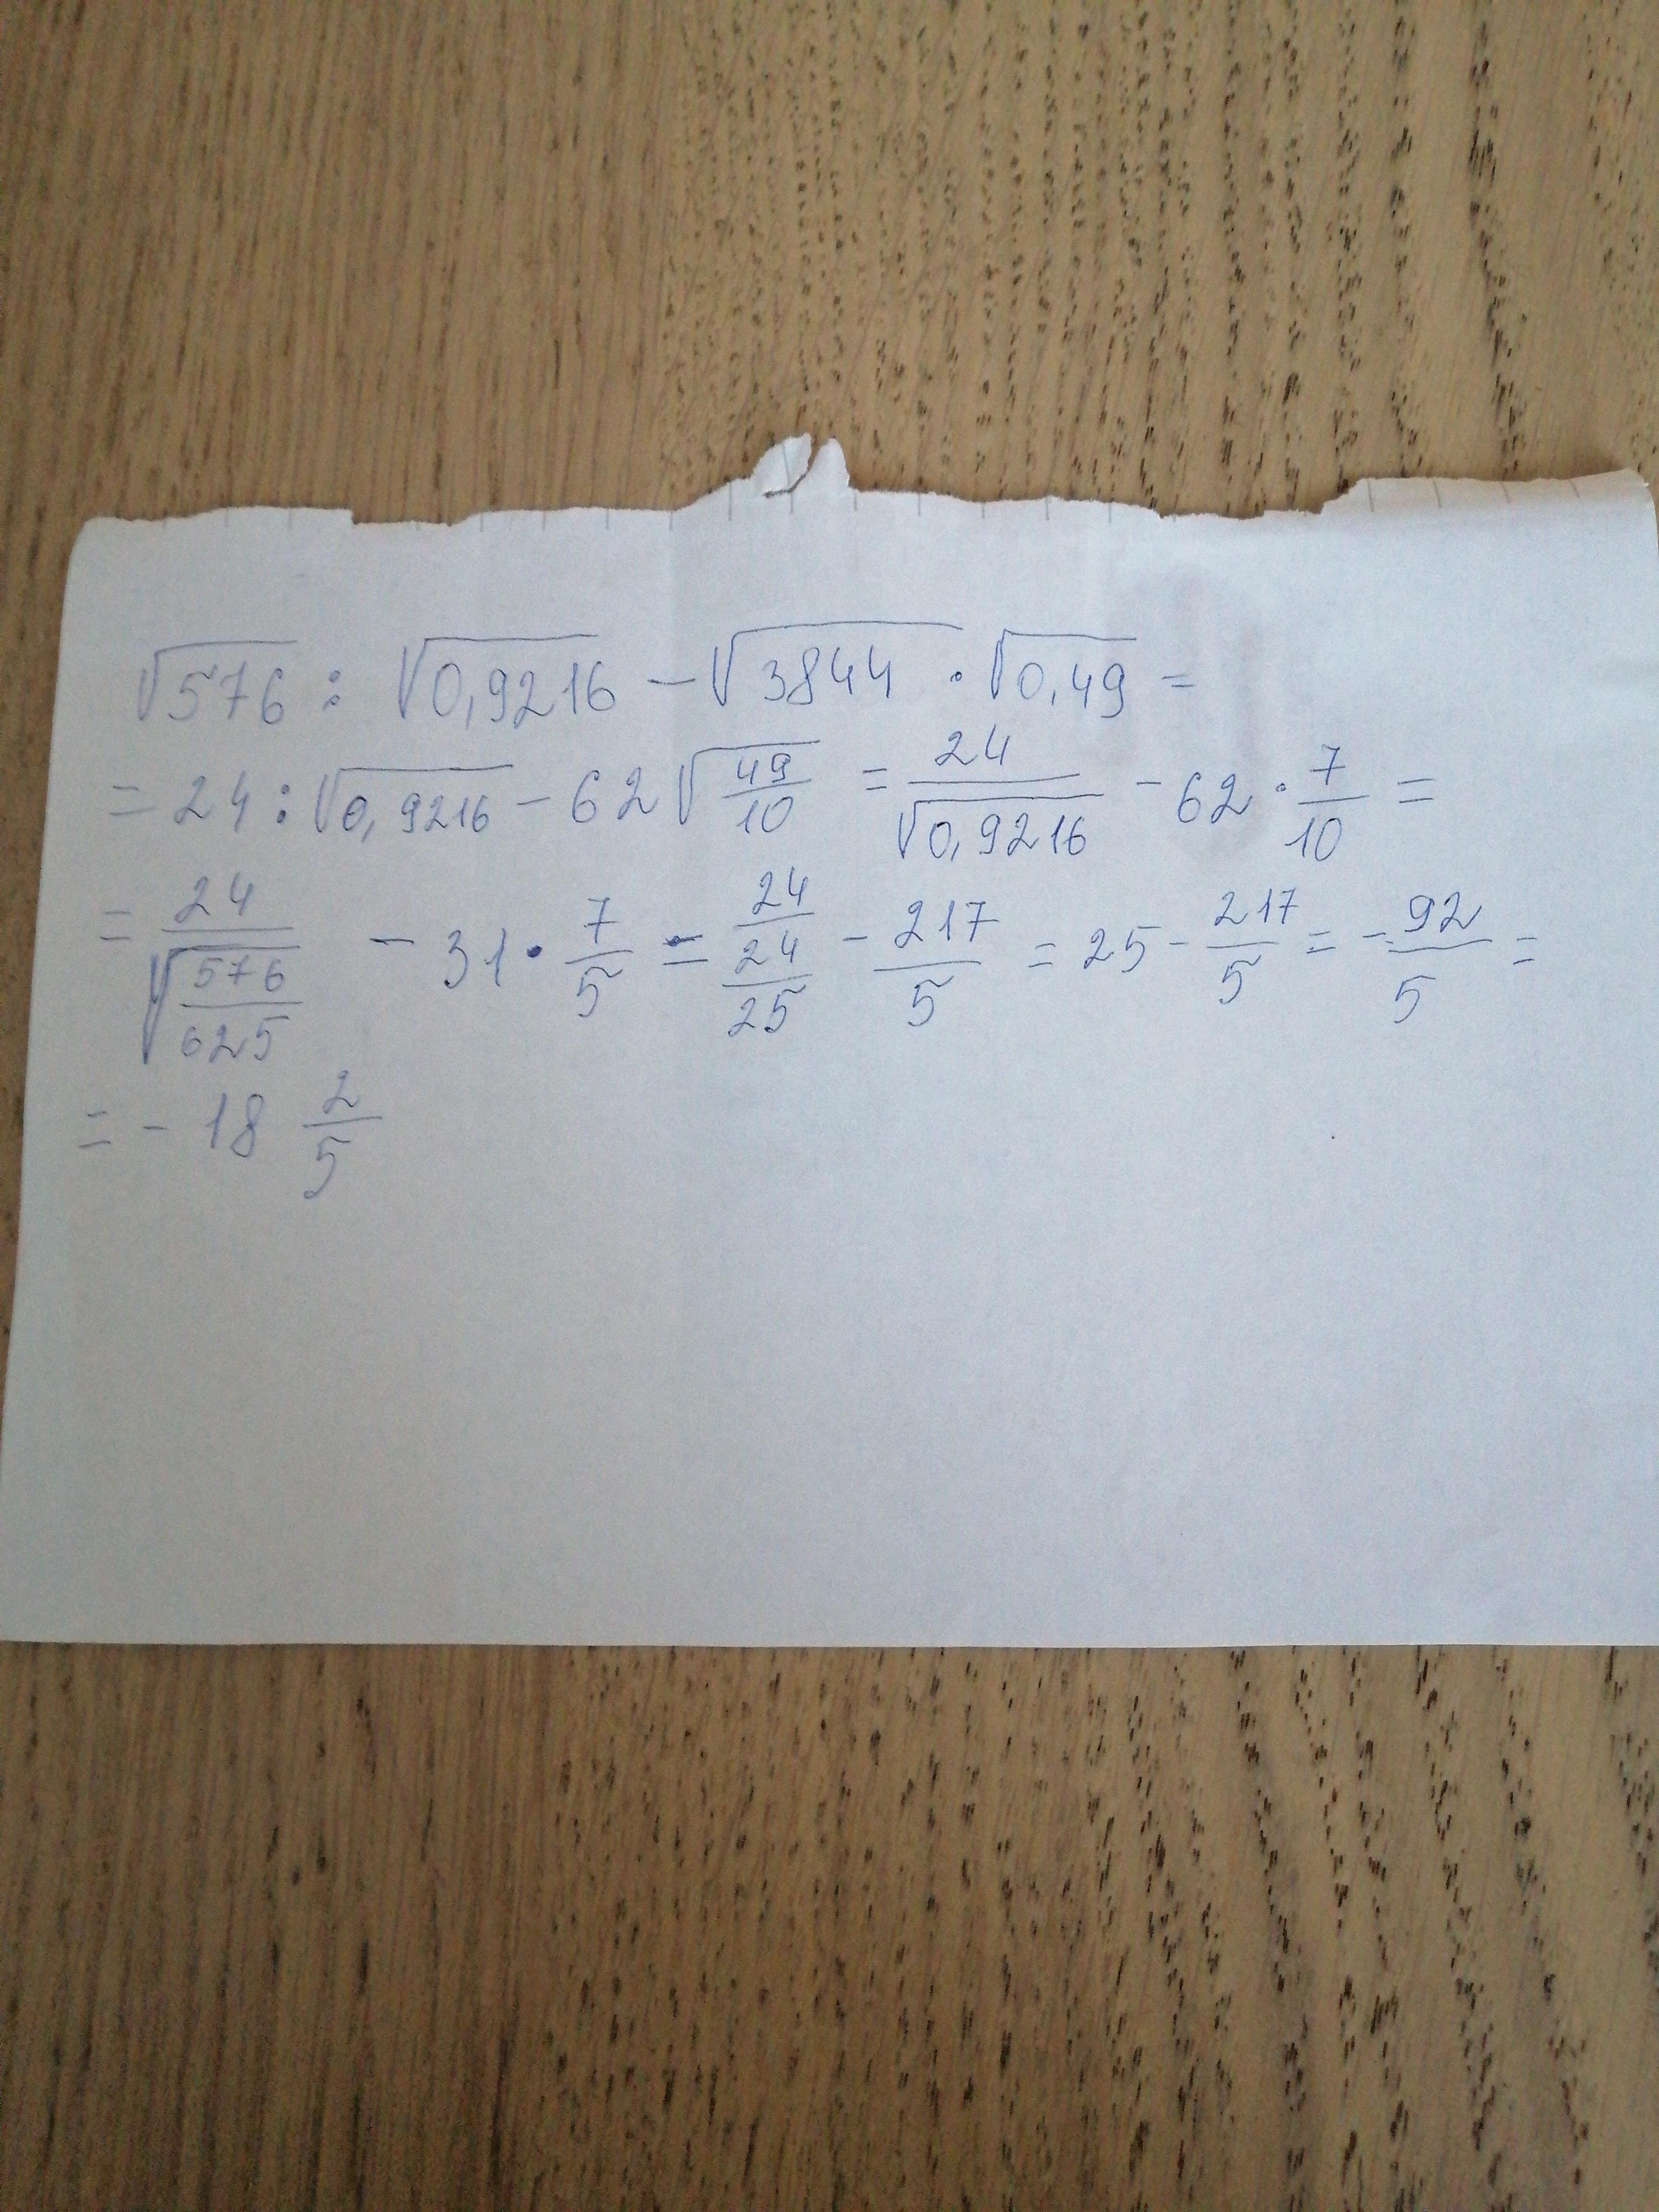 √576 : √0,9216 − √3844 · √0,49 =
= 24 : √0,9216 − 62 √(49/10) = 24/√0,9216 − 62 · 7/10 =
= 24/√(576/625) − 31 · 7/5 = 24/(24/25) − 217/5 = 25 − 217/5 = − 92/5 =
= − 18 2/5